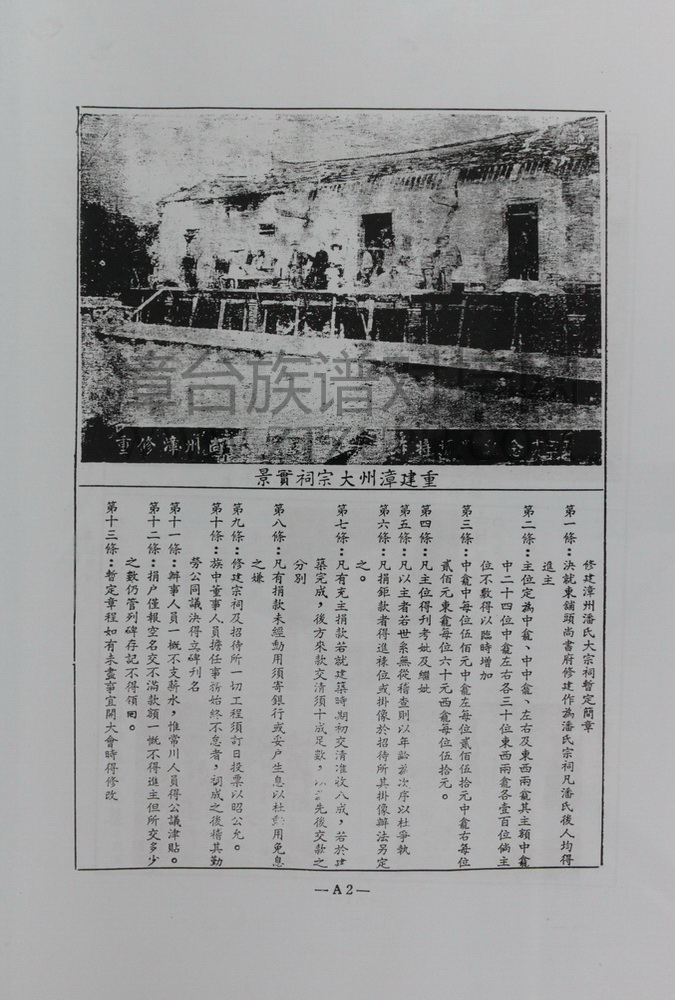 章台族谱对
重修漳州尚
重建漳州大宗祠實景
修建漳州潘氏大宗祠暫定簡章
第一條：決就東鋪頭尚書府修建作為潘氏宗祠凡潘氏後人均得
進主
第二條：主位定為中龕、中中龕、左右及東西兩龕其主額中龕
中二十四位中龕左右各三十位東西兩龕各壹百位倘主
位不敷得以臨時增加
第三條：中龕中每位伍佰元中龕左每位貳佰伍拾元中龕右每位
貳佰元東龕每位六十元西龕每位伍拾元。
第四條：凡主位得刊考妣及繼妣
第五條：凡以主者若世系無從稽查則以年齡為次序以杜爭執
第六條：凡捐鉅款者得進祿位或掛像於招待所其掛像辦法另定
之。
第七條：凡有充主捐款若就建築時期初交清准收八成，若於建
築完成，後方來款交清須十成足數，以先後交款之
分別
第八條：凡有捐款未經動用須寄銀行或妥户生息以杜動用免息
之嫌
第九條：修建宗祠及招待所一切工程須訂日投票以昭公允。
第十條：族中董事人員擔任事務始終不怠者，祠成之後稽其勤
勞公同議決得立碑刊名
第十一條：辦事人員一概不支薪水，惟常川人員得公議津貼。
第十二條：捐户僅報空名交不滿款額一概不得進主但所交多少
之數仍管列碑存記不得領回。
第十三條：暫定章程如有未盡事宜開大會時得修改
—A2—